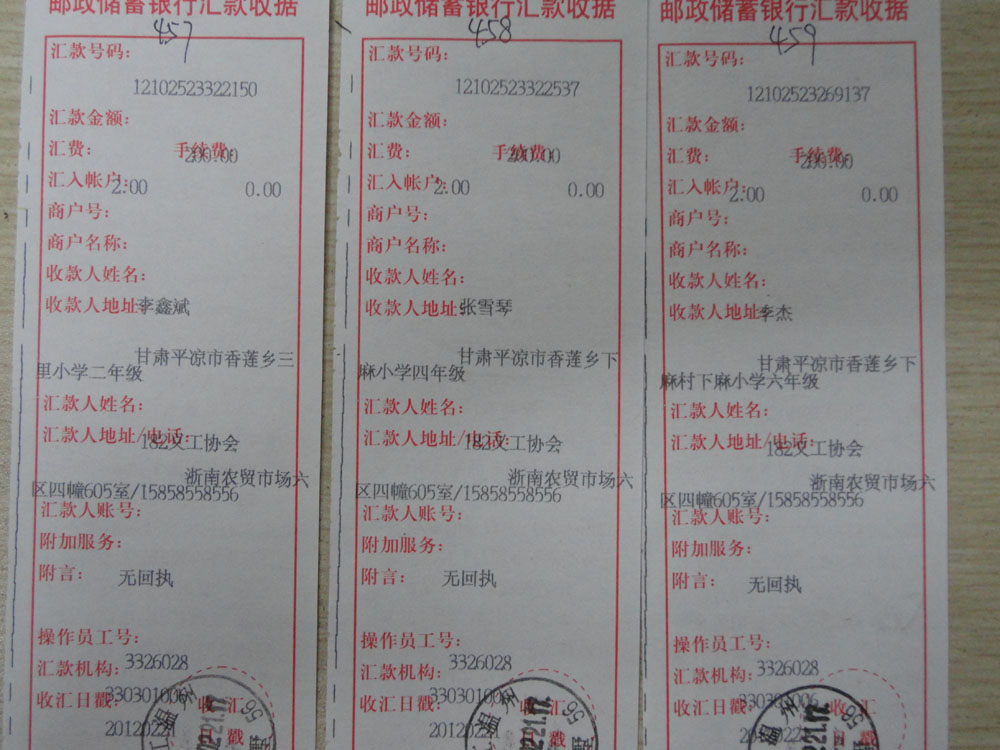 邮政储蓄银行汇款收据
457
汇款号码:
12102523322150
汇款金额:
汇费: 手续费:
200.00
汇入帐户:
2.00 0.00
商户号:
商户名称:
收款人姓名:
收款人地址:
李鑫斌
甘肃平凉市香莲乡三
里小学二年级
汇款人姓名:
汇款人地址/电话:
182义工协会
浙南农贸市场六
区四幢605室/15858558556
汇款人账号:
附加服务:
附言: 无回执
操作员工号:
3326028
汇款机构:
收汇日戳:
20120221
收汇
戳
邮政储蓄银行汇款收据
458
汇款号码:
12102523322537
汇款金额:
汇费: 手续费:
200.00
汇入帐户:
2.00 0.00
商户号:
商户名称:
收款人姓名:
收款人地址:
张雪琴
甘肃平凉市香莲乡下
麻小学四年级
汇款人姓名:
汇款人地址/电话:
182义工协会
浙南农贸市场六
区四幢605室/15858558556
汇款人账号:
附加服务:
附言: 无回执
操作员工号:
3326028
汇款机构:
收汇日戳:
20120221
收汇
戳
邮政储蓄银行汇款收据
459
汇款号码:
12102523269137
汇款金额:
汇费: 手续费:
200.00
汇入帐户:
2.00 0.00
商户号:
商户名称:
收款人姓名:
收款人地址:
李杰
甘肃平凉市香莲乡下
麻村下麻小学六年级
汇款人姓名:
汇款人地址/电话:
182义工协会
浙南农贸市场六
区四幢605室/15858558556
汇款人账号:
附加服务:
附言: 无回执
操作员工号:
3326028
汇款机构:
收汇日戳:
收汇
戳